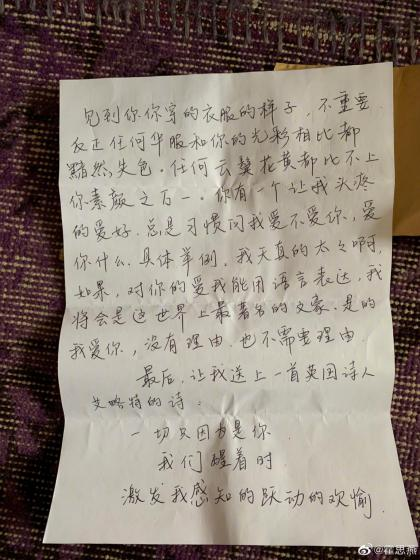 见到你你穿的衣服的样子，不重要
反正任何华服和你的光彩相比都
黯然失色。任何云鬓花黄都比不上
你素颜之万一。你有一个让我头疼
的爱好。总是习惯问我爱不爱你，爱
你什么，具体举例。我天真的太太啊，
如果，对你的爱我能用语言表达，我
将会是这世界上最著名的文豪。是的
我爱你，没有理由，也不需要理由。
最后，让我送上一首英国诗人
艾略特的诗：
一切只因为是你
我们醒着时
激发我感知的跃动的欢愉
@霍思燕